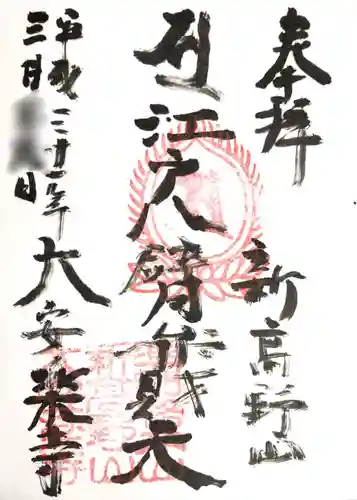 奉拝
新高野山
江戸八臂弁財天
平成三十一年
三月
日
大安楽寺